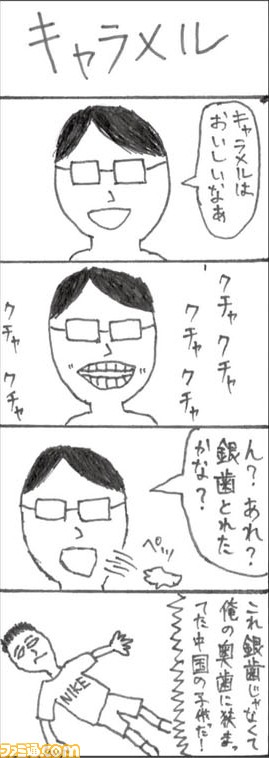 キャラメル
キャラメルは
おいしいなぁ
クチャ クチャ
クチャ
クチャ
クチャ
ん？あれ？
銀歯とれた
かな？
ペッ
これ銀歯じゃなくて
俺の奥歯に狭まっ
てた中国の子供だ！
NIKE
ファミ通.com